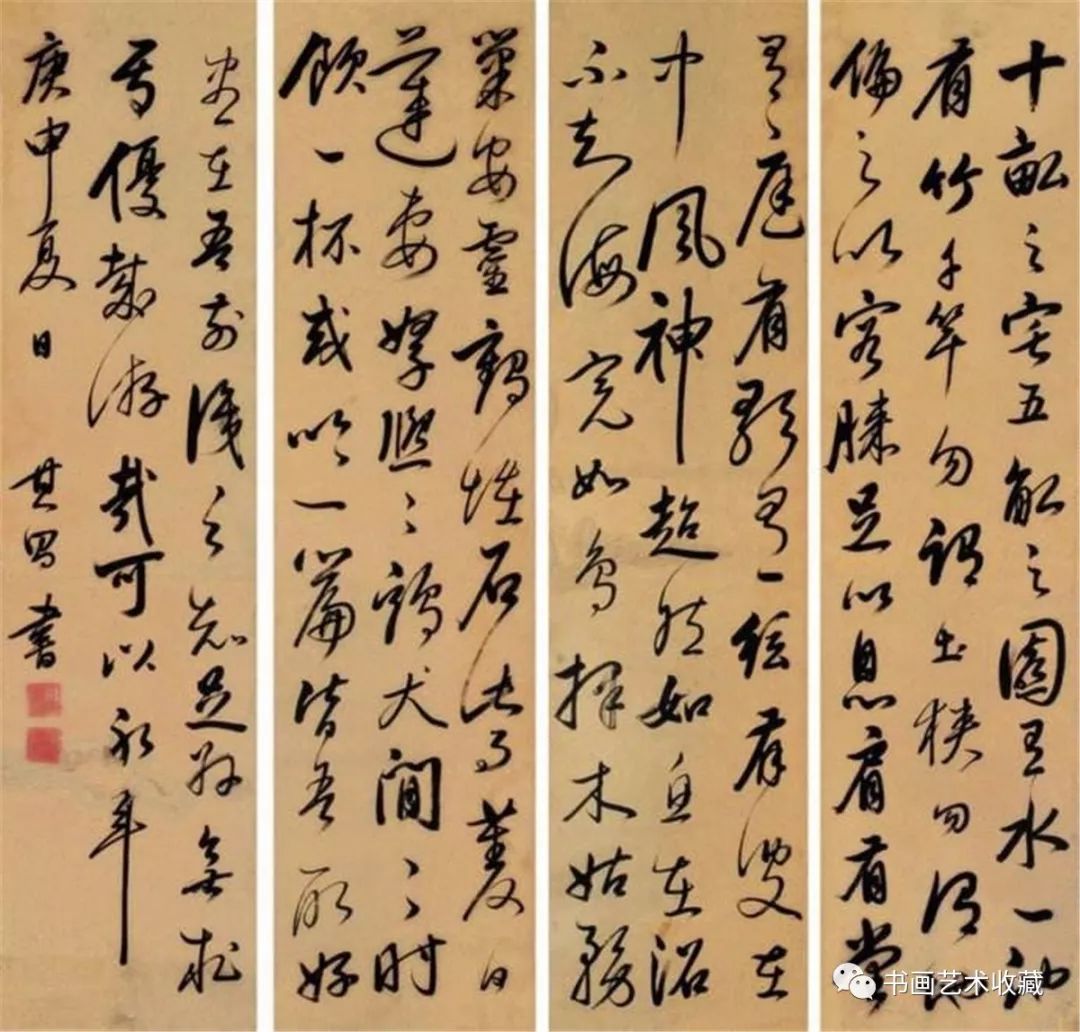 十畝之宅五畝之園有水一池
有竹千竿勿謂土狹勿謂地
偏足以容膝足以息肩有堂
有庭有歌有一絃有叟在
中風神超然如魚在沼
不知海寬如鳥擇木姑務
巢安靈鶴怪石紫菱白
蓮妻孥熙熙鷄犬閒閒時
飲一杯或吟一篇皆吾所好
盡在吾前識分知足外無求
焉優哉游哉可以永年
庚申夏日 其昌書
书画艺术收藏